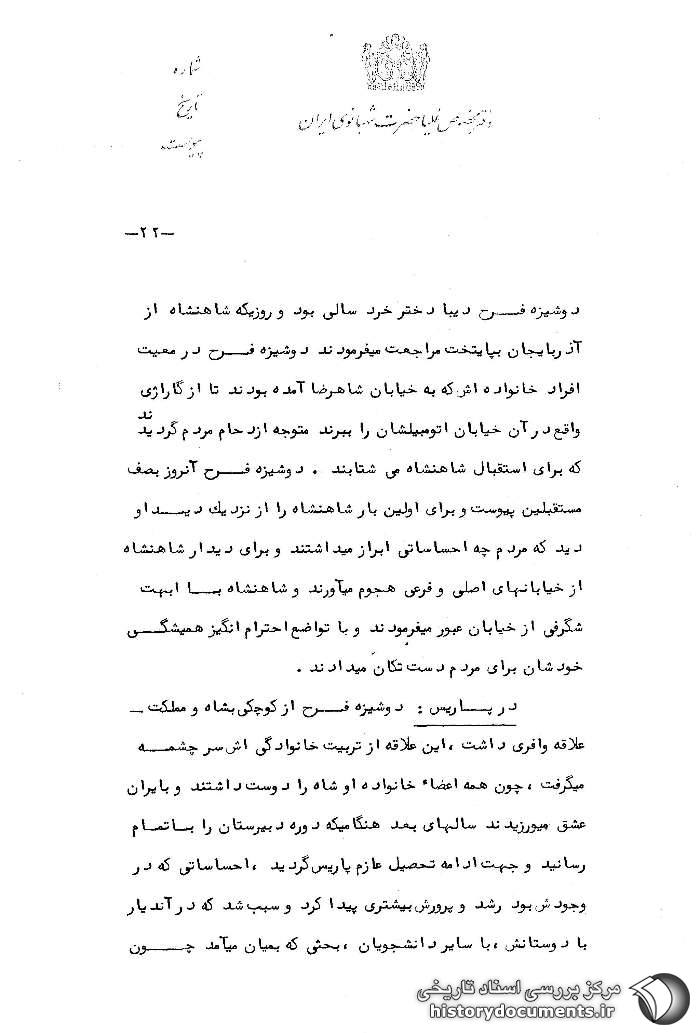 شماره
تاریخ
پیوست
دفتر مخصوص علیاحضرت شهبانوی ایران
-۲۲-
دوشیزه فرح دیبا دختر خرد سالی بود و روزیکه شاهنشاه از
آذربایجان بپایتخت مراجعت میفرمودند دوشیزه فرح در معیت
افراد خانواده اش که به خیابان شاهرضا آمده بودند تا از گاراژی
واقع در آن خیابان اتومبیلشان را ببرند متوجه ازدحام مردم گردیدند
که برای استقبال شاهنشاه می شتابند . دوشیزه فرح آنروز بصف
مستقبلین پیوست و برای اولین بار شاهنشاه را از نزدیك دید او
دید که مردم چه احساساتی ابراز میداشتند و برای دیدار شاهنشاه
از خیابانهای اصلی و فرعی هجوم میآورند و شاهنشاه با ابهت
شگرفی از خیابان عبور میفرمودند و با تواضع احترام انگیز همیشگی
خودشان برای مردم دست تکان میدادند .
در پاریس : دوشیزه فرح از کوچکی بشاه و مملکت -
علاقه وافری داشت ، این علاقه از تربیت خانوادگی اش سر چشمه
میگرفت ، چون همه اعضاء خانواده او شاه را دوست داشتند و بایران
عشق میورزیدند سالهای بعد هنگامیکه دوره دبیرستان را باتمام
رسانید و جهت ادامه تحصیل عازم پاریس گردید ، احساساتی که در
وجودش بود رشد و پرورش بیشتری پیدا کرد و سبب شد که در آندیار
با دوستانش ، با سایر دانشجویان ، بحثی که بمیان میآمد چون
مرکز بررسی اسناد تاریخی
historydocuments.ir